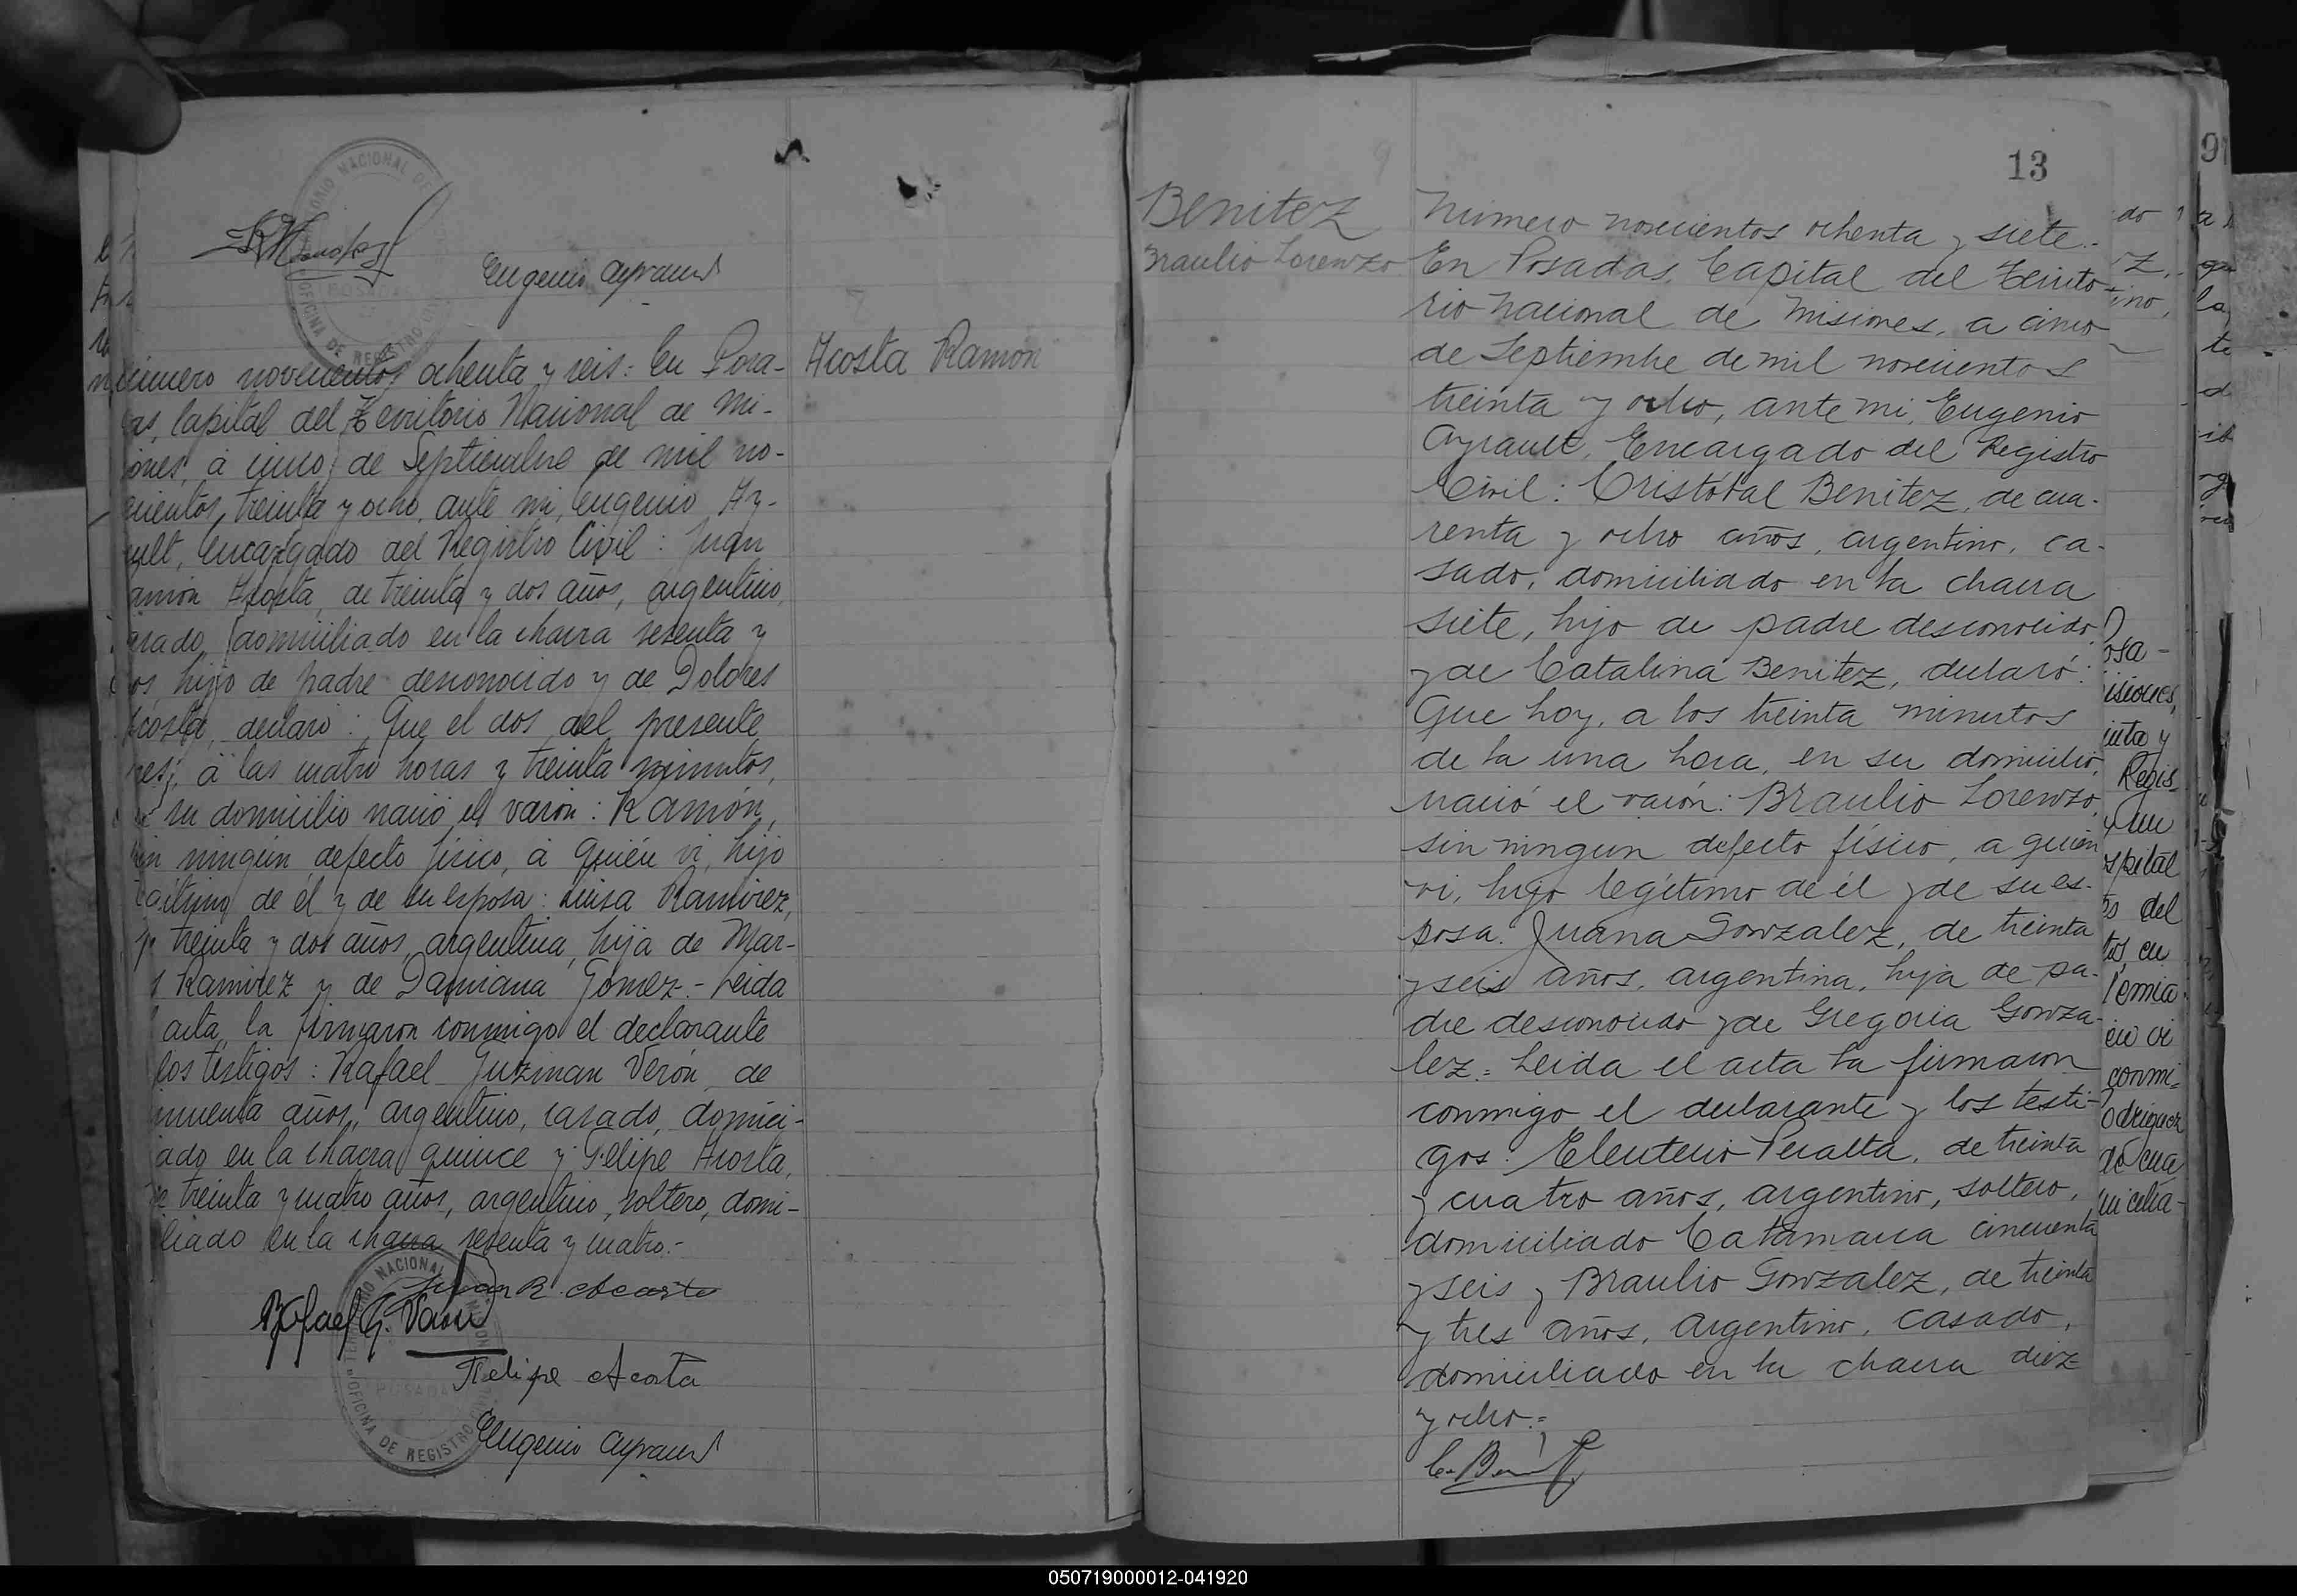 Eugenio Ayrault
Acosta Ramón
número novecientos ochenta y seis: En Posa-
as, Capital del Territorio Nacional de Mi-
ones, á cinco de Septiembre de mil no-
cientos treinta y ocho, ante mi, Eugenio Ay-
ult, Encargado del Registro Civil: Juan
amón Acosta, de treinta y dos años, argentino,
sado, domiciliado en la chacra sesenta y
os, hijo de padre desconocido y de Dolores
Acosta, declaró: Que el dos del presente
mes, á las cuatro horas y treinta minutos,
en su domicilio nació el varón: Ramón,
sin ningún defecto físico, á quién vi, hijo
legítimo de él y de su esposa: Luisa Ramirez,
de treinta y dos años, argentina, hija de Mar-
s Ramirez y de Damiana Gomez.- Leida
acta, la firmaron conmigo el declarante
los testigos: Rafael Guzman Verón, de
incuenta años, argentino, casado, domici-
iado en la chacra quince y Felipe Acosta,
de treinta y cuatro años, argentino, soltero, domi-
liado en la chacra sesenta y cuatro.-
Juan R. Acosta
Rafael G. Veron
Felipe Acosta
Eugenio Ayrault
TERRITORIO NACIONAL DE MISIONES
POSADAS
OFICINA DE REGISTRO CIVIL
13
Benitez
Braulio Lorenzo
Número novecientos ochenta y siete.-
En Posadas, Capital del Territo-
rio Nacional de Misiones, a cinco
de Septiembre de mil novecientos
treinta y ocho, ante mi, Eugenio
Ayrault, Encargado del Registro
Civil: Cristóbal Benitez, de cua-
renta y ocho años, argentino, ca-
sado, domiciliado en la chacra
siete, hijo de padre desconocido
y de Catalina Benitez, declaró:
Que hoy, a los treinta minutos
de la una hora, en su domicilio,
nació el varón: Braulio Lorenzo,
sin ningun defecto físico, a quien
vi, hijo legítimo de él y de su es-
posa. Juana Gonzalez, de treinta
y seis años, argentina, hija de pa-
dre desconocido y de Gregoria Gonza-
lez.= Leida el acta la firmaron
conmigo el declarante y los testi-
gos: Eleuterio Peralta, de treinta
y cuatro años, argentino, soltero,
domiciliado Catamarca cincuenta
y seis y Braulio Gonzalez, de treinta
y tres años, argentino, casado,
domiciliado en la chacra diez
y ocho.=
050719000012-041920